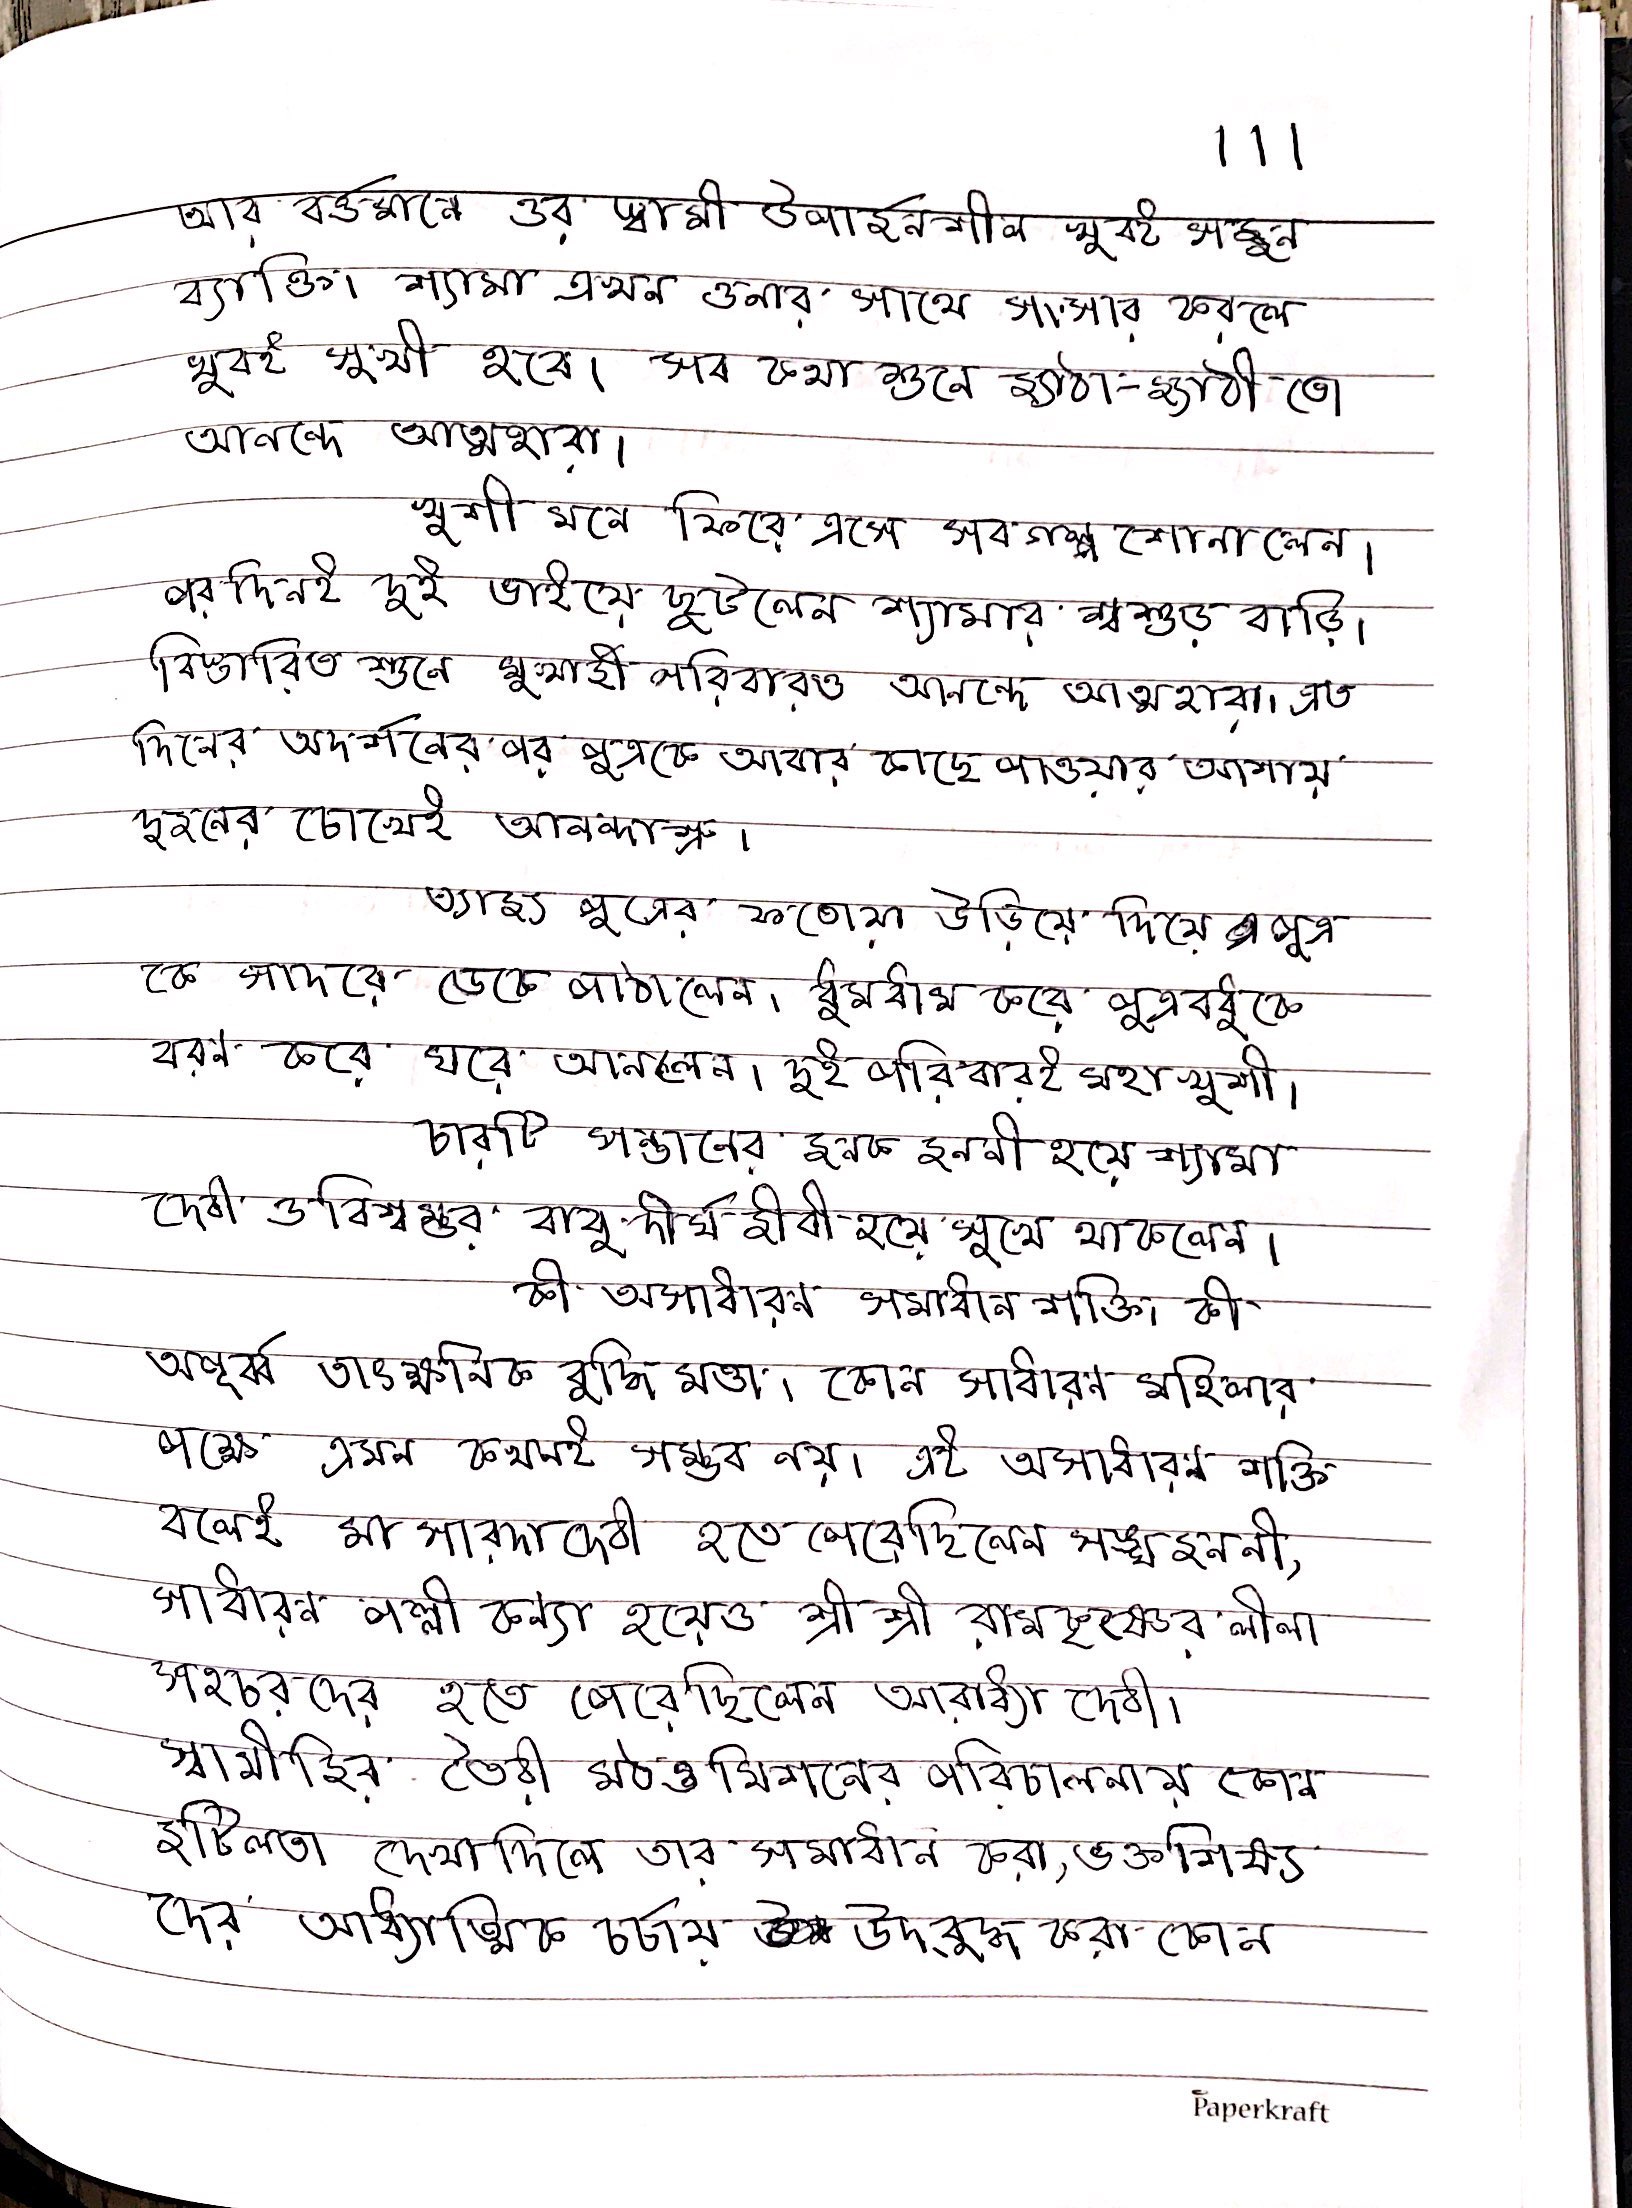 111
আর বর্ত্তমানে ওর স্বামী উপার্জনশীল খুবই সজ্জন
ব্যাক্তি। শ্যামা এখন ওনার সাথে সংসার করলে
খুবই সুখী হবে। সব কথা শুনে জ্যাঠা-জ্যাঠী তো
আনন্দে আত্মহারা।
খুশী মনে ফিরে এসে সব গল্প শোনালেন।
পরদিনই দুই ভাইয়ে ছুটলেন শ্যামার শ্বশুড় বাড়ি।
বিস্তারিত শুনে মুখার্জী পরিবারও আনন্দে আত্মহারা। এত
দিনের অদর্শনের পর পুত্রকে আবার কাছে পাওয়ার আশায়
দুজনের চোখেই আনন্দাশ্রু।
ত্যাজ্য পুত্রের ফতোয়া উড়িয়ে দিয়ে পুত্র
কে সাদরে ডেকে পাঠালেন। ধুমধাম করে পুত্রবধুকে
বরণ করে ঘরে আনলেন। দুই পরিবারই মহা খুশী।
চারটি সন্তানের জনক জননী হয়ে শ্যামা
দেবী ও বিশ্বম্ভর বাবু দীর্ঘজীবী হয়ে সুখে থাকলেন।
কী অসাধারণ সমাধান শক্তি। কী
অপূর্ব্ব তাৎক্ষনিক বুদ্ধিমত্তা। কোন সাধারণ মহিলার
পক্ষে এমন কখনই সম্ভব নয়। এই অসাধারণ শক্তি
বলেই মা সারদাদেবী হতে পেরেছিলেন সঙ্ঘজননী,
সাধারণ পল্লী কন্যা হয়েও শ্রী শ্রী রামকৃষ্ণের লীলা
সহচরদের হতে পেরেছিলেন আরাধ্যা দেবী।
স্বামীজির তৈরী মঠ ও মিশনের পরিচালনায় কোন
জটিলতা দেখা দিলে তার সমাধান করা, ভক্তশিষ্য
দের আধ্যাত্মিক চর্চায় উদ্‌বুদ্ধ করা কোন
Paperkraft